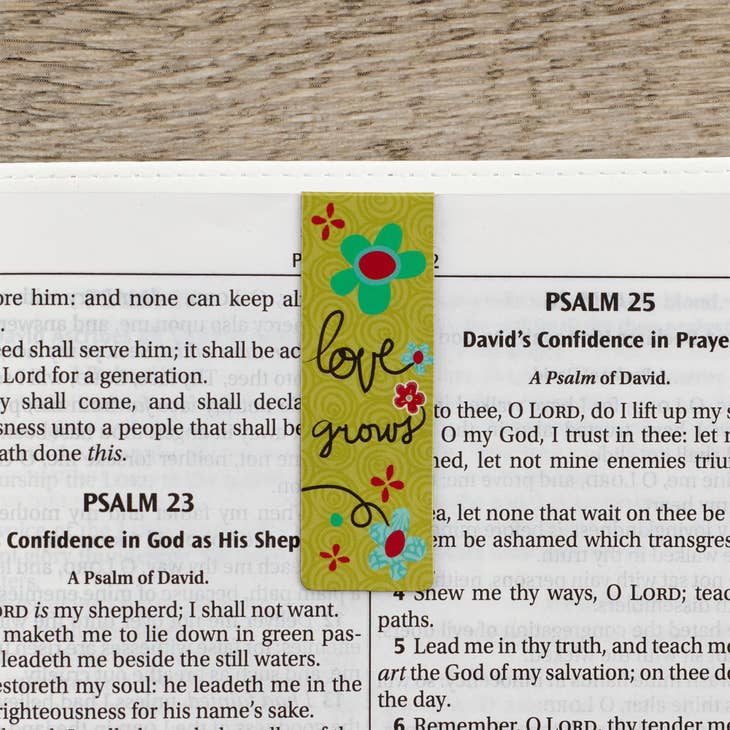 2
ore him: and none can keep al
eed shall serve him; it shall be ac
Lord for a generation.
y shall come, and shall decla
sness unto a people that shall be
ath done this.
PSALM 23
Confidence in God as His Shep
A Psalm of David.
ORD is my shepherd; I shall not want.
maketh me to lie down in green pas-
leadeth me beside the still waters.
estoreth my soul: he leadeth me in the
righteousness for his name's sake.
love
grows
PSALM 25
David's Confidence in Praye
A Psalm of David.
to thee, O LORD, do I lift up my s
O my God, I trust in thee: let
ned, let not mine enemies triu
ea, let none that wait on thee be
em be ashamed which transgres
4 Shew me thy ways, O LORD; teac
paths.
5 Lead me in thy truth, and teach me
art the God of my salvation; on thee do
the day.
6 Remember, O LORD, thy tender me